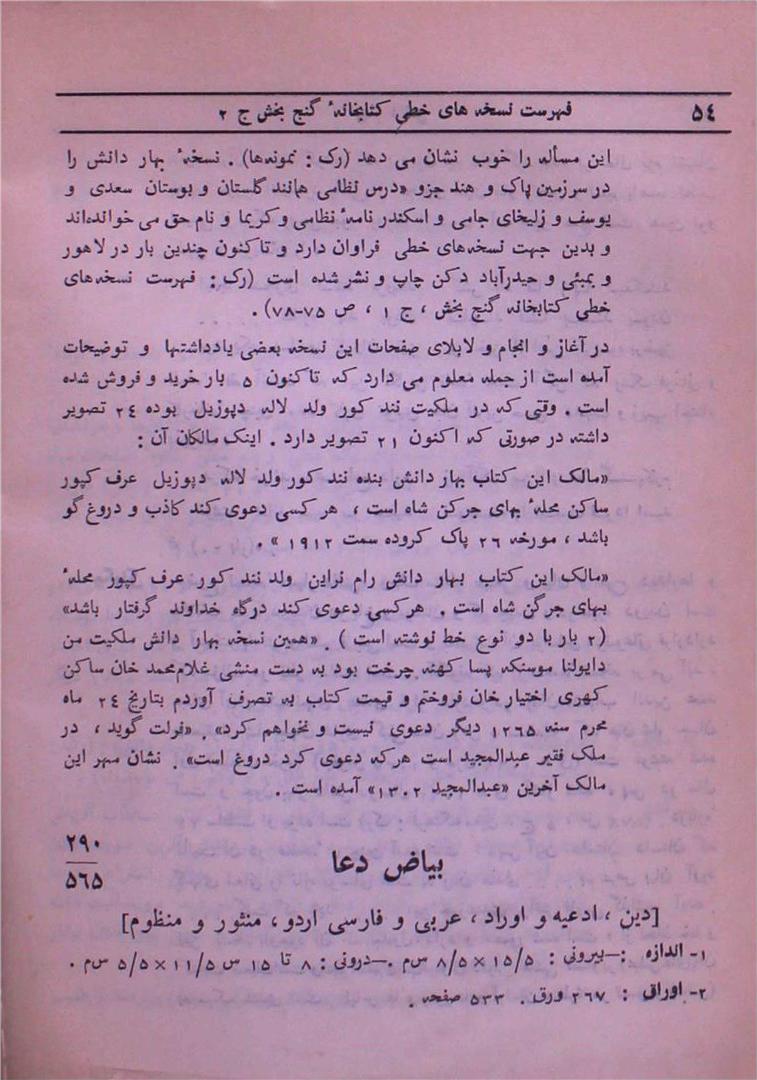 ٥٤ فهرست نسخه های خطی کتابخانهٔ گنج بخش ج ٢
این مسأله را خوب نشان می دهد (رک : نمونه‌ها) . نسخهٔ بهار دانش را
در سرزمین پاک و هند جزو «درس نظامی همانند گلستان و بوستان سعدی و
یوسف و زلیخای جامی و اسکندر نامهٔ نظامی و کریما و نام حق می خوانده‌اند
و بدین جهت نسخه‌های خطی فراوان دارد و تاکنون چندین بار در لاهور
و بمبئی و حیدرآباد دکن چاپ و نشر شده است (رک : فهرست نسخه‌های
خطی کتابخانه گنج بخش ، ج ١ ، ص ٧٥-٧٨) .
در آغاز و انجام و لابلای صفحات این نسخه بعضی یادداشتها و توضیحات
آمده است از جمله معلوم می دارد که تاکنون ٥ بار خرید و فروش شده
است . وقتی که در ملکیت نند کور ولد لاله دپوزیل بوده ٢٤ تصویر
داشته در صورتی که اکنون ٢١ تصویر دارد . اینک مالکان آن :
«مالک این کتاب بهار دانش بنده نند کور ولد لاله دپوزیل عرف کپور
ساکن محلهٔ بهای جرکن شاه است ، هر کسی دعوی کند کاذب و دروغ گو
باشد ، مورخه ٢٦ پاک کروده سمت ١٩١٢ » .
«مالک این کتاب بهار دانش رام نراین ولد نند کور عرف کپور محلهٔ
بهای جرگن شاه است . هر کسی دعوی کند درگاه خداوند گرفتار باشد»
(٢ بار با دو نوع خط نوشته است ) . «همین نسخه بهار دانش ملکیت من
دایولنا موسنکه پسا کهنه چرخت بود به دست منشی غلام‌محمد خان ساکن
کهری اختیار خان فروختم و قیمت کتاب به تصرف آوردم بتاریخ ٢٤ ماه
محرم سنه ١٢٦٥ دیگر دعوی نیست و نخواهم کرد» . «فرلت گوید ، در
ملک فقیر عبدالمجید است هرکه دعوی کرد دروغ است» . نشان مهر این
مالک آخرین «عبدالمجید ١٣٠٢» آمده است .
٢٩٠
٥٦٥
بیاض دعا
[دین ، ادعیه و اوراد ، عربی و فارسی اردو ، منثور و منظوم]
١- اندازه :—بیرونی : ١٥/٥ × ٨/٥ س م .—درونی : ٨ تا ١٥ س ١١/٥ × ٥/٥ س م .
٢- اوراق : ٢٦٧ ورق . ٥٣٣ صفحه .